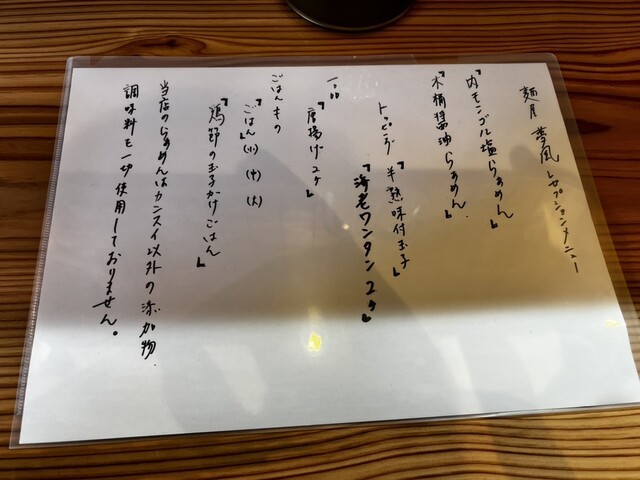 麺屋 夢風 レセプションメニュー
『内モンゴル塩らぁめん』
『木桶醤油らぁめん』
トッピング 『半熟味付玉子』
『海老ワンタン2ヶ』
一品
『唐揚げ2ヶ』
ごはんもの
『ごはん』(小)(中)(大)
『鶏野の玉子かけごはん』
当店のらぁめんはカンスイ以外の添加物.
調味料を一切使用しておりません。